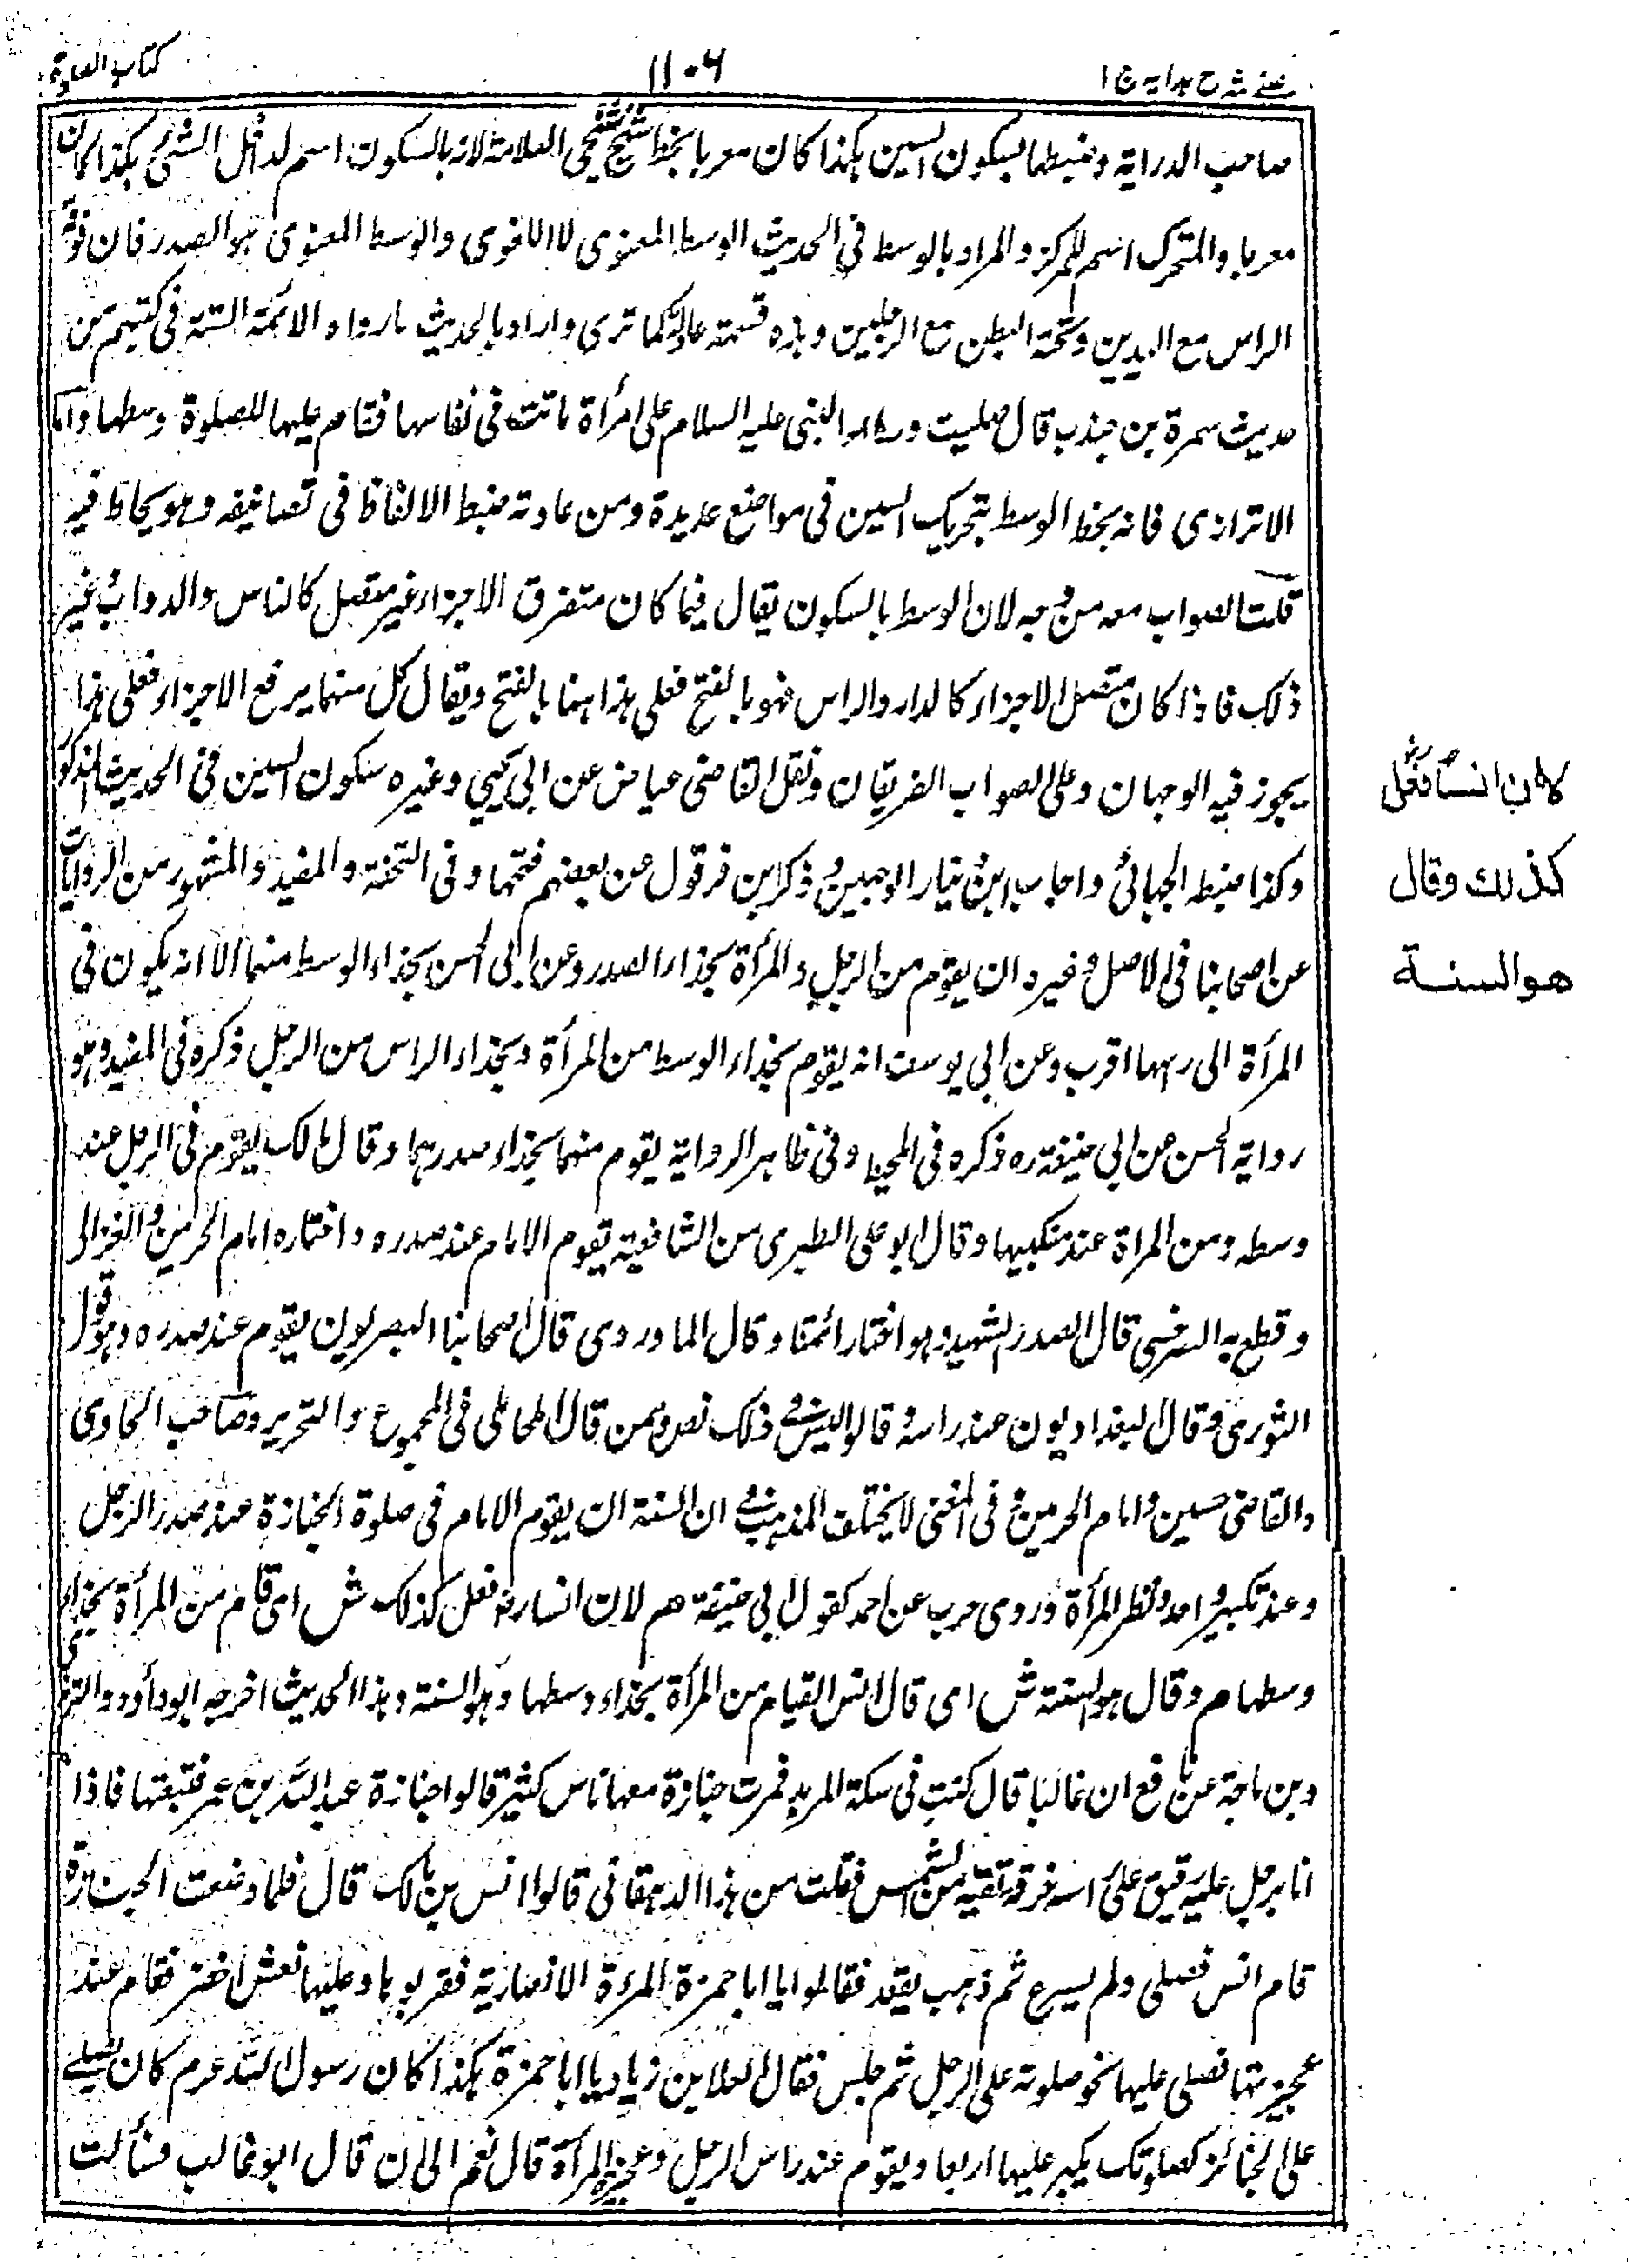 كتاب الصلوة
١١٠٦
عيني شرح هدايه ج ١
صاحب الدراية وضبطها بسكون السين هكذا كان معربا بخط شيخ شيخي العلامة لانه بالسكون اسم لداخل الشئ هكذا كان
معربا والمتحرك اسم للمركز والمراد بالوسط في الحديث الوسط المعنوى لا اللغوى والوسط المعنوى هو الصدر فان فوقه
الراس مع اليدين وتحته البطن مع الرجلين وهذه قسمة عادلة كما ترى واراد بالحديث ما رواه الائمة الستة فى كتبهم من
حديث سمرة بن جندب قال صليت وراء النبى عليه السلام على امرأة ماتت فى نفاسها فقام عليها للصلوة وسطها واما
الاترازى فانه بخط الوسط بتحريك السين فى مواضع عديدة ومن عادته ضبط الالفاظ فى تصانيفه وهو يحاط فيه
قلت الصواب معه من وجه لان الوسط بالسكون يقال فيما كان متفرق الاجزاء غير متصل كالناس والدواب غير
ذلك فاذا كان متصل الاجزاء كالدار والراس فهو بالفتح فعلى هذا هنا بالفتح ويقال كل منهما يرفع الاجزاء فعلى هذا
يجوز فيه الوجهان وعلى الصواب الفريقان ونقل القاضى عياض عن ابى يحيي وغيره سكون السين فى الحديث المذكور
وكذا ضبطه الجبائى واجاب ابن دينار الوجهين وذكر ابن قرقول عن بعضهم فتحها وفى التحفة والمفيد والمشهور من الروايات
عن اصحابنا فى الاصل وغيره ان يقوم من الرجل والمرأة بحذاء الصدر وعن ابى الحسن بحذاء الوسط منهما الا انه يكون فى
المرأة الى رسها اقرب وعن ابي يوسف انه يقوم بحذاء الوسط من المرأة وبحذاء الراس من الرجل ذكره فى المفيد وهو
رواية الحسن عن ابي حنيفة ره ذكره فى المحيط وفى ظاهر الرواية يقوم منهما بحذاء صدرهما وقال مالك يقوم فى الرجل عند
وسطه ومن المراة عند منكبيها وقال ابو على الطبرى من الشافعية يقوم الامام عند صدره واختاره امام الحرمين والغزالى
وقطع به السرخسى قال الصدر الشهيد وهو اختار ائمتنا وقال الماوردى قال اصحابنا البصريون يقوم عند صدره وهو قول
الثورى وقال البغداديون عند راسه وقالوا ليس فى ذلك نص وممن قال المحاملى فى المجموع والتحرير وصاحب الحاوى
والقاضى حسين وامام الحرمين وفى المغنى لا يختلف المذهب فى ان السنة ان يقوم الامام فى صلوة الجنازة عند صدر الرجل
وعند تكبير واحد ونظر المرأة وروى حرب عن احمد كقول ابي حنيفة هم لان انسا رضه فعل كذلك ش اى قام من المرأة بحذاء
وسطها م وقال هو السنة ش اى قال انس القيام من المرأة بحذاء وسطها وهو السنة وهذا الحديث اخرجه ابو داود والترمذى
وبن ماجة عن نافع ان غالبا قال كنت فى سكة المربد فمرت جنازة معها ناس كثير قالوا جنازة عبد الله بن عمر فتبعتها فاذا
انا برجل عليه رقيق على راسه خرقة تقيه من الشمس فقلت من هذا الدهقانى قالوا انس بن مالك قال فلما وضعت الجنازة
قام انس فصلى ولم يسرع ثم ذهب يقعد فقالوا يا ابا حمزة المرءة الانصارية فقربوها وعليها نعش اخضر فقام عند
عجيزتها فصلى عليها نحو صلوته على الرجل ثم جلس فقال العلا بن زياد يا ابا حمزة هكذا كان رسول الله صلعم كان يصلى
على الجنائز كصلوتك يكبر عليها اربعا ويقوم عند راس الرجل وعجيزة المرأة قال نعم الى ان قال ابو غالب فسألت
لان انسا رض فعل
كذلك وقال
هو السنة